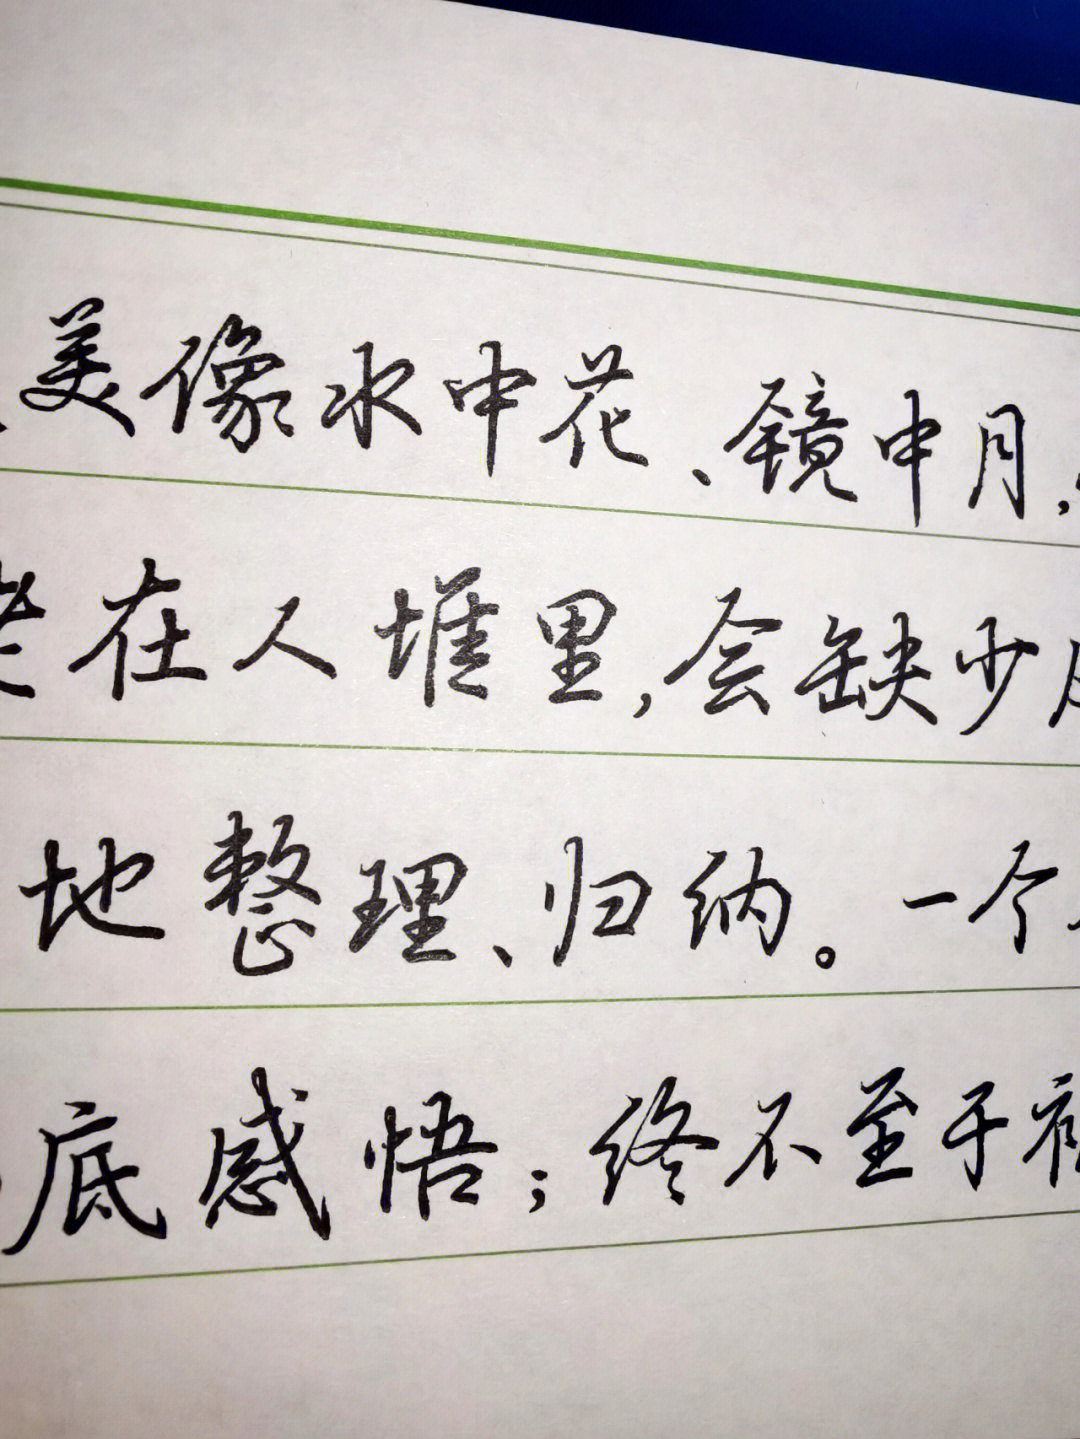 美像水中花、镜中月,
在人堆里,会缺少
地整理、归纳。一个
底感悟;终不至于